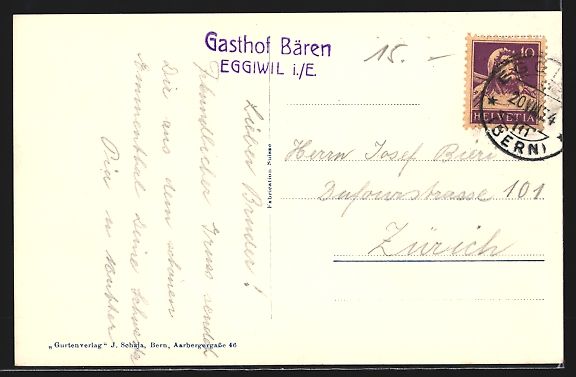 Gasthof Bären
EGGIWIL i./E.
15. –
10
HELVETIA
20.VII.
(BERN)
Lieber Bruder!
Freundlicher Gruss sendet
Dir aus dem schönen
Emmenthal Deine Schwester
Pia u Mutter
Herrn Josef Bieri
Dufourstrasse 101
Zürich
Fabrication Suisse
„Gurtenverlag“ J. Schaja, Bern, Aarbergergaße 46